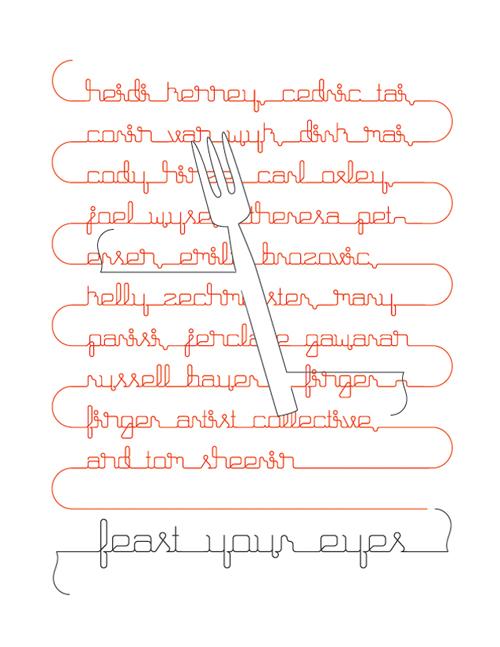 heidi kenney, cedric tai,
corin van wyk, dirk mai,
cody carl oxley,
joel theresa pet-
ersen, emily brozovic,
kelly zechmeister, mary
parisi, jenclare gawaran
russell finger
finger artist collective,
and tom sheerin
feast your eyes